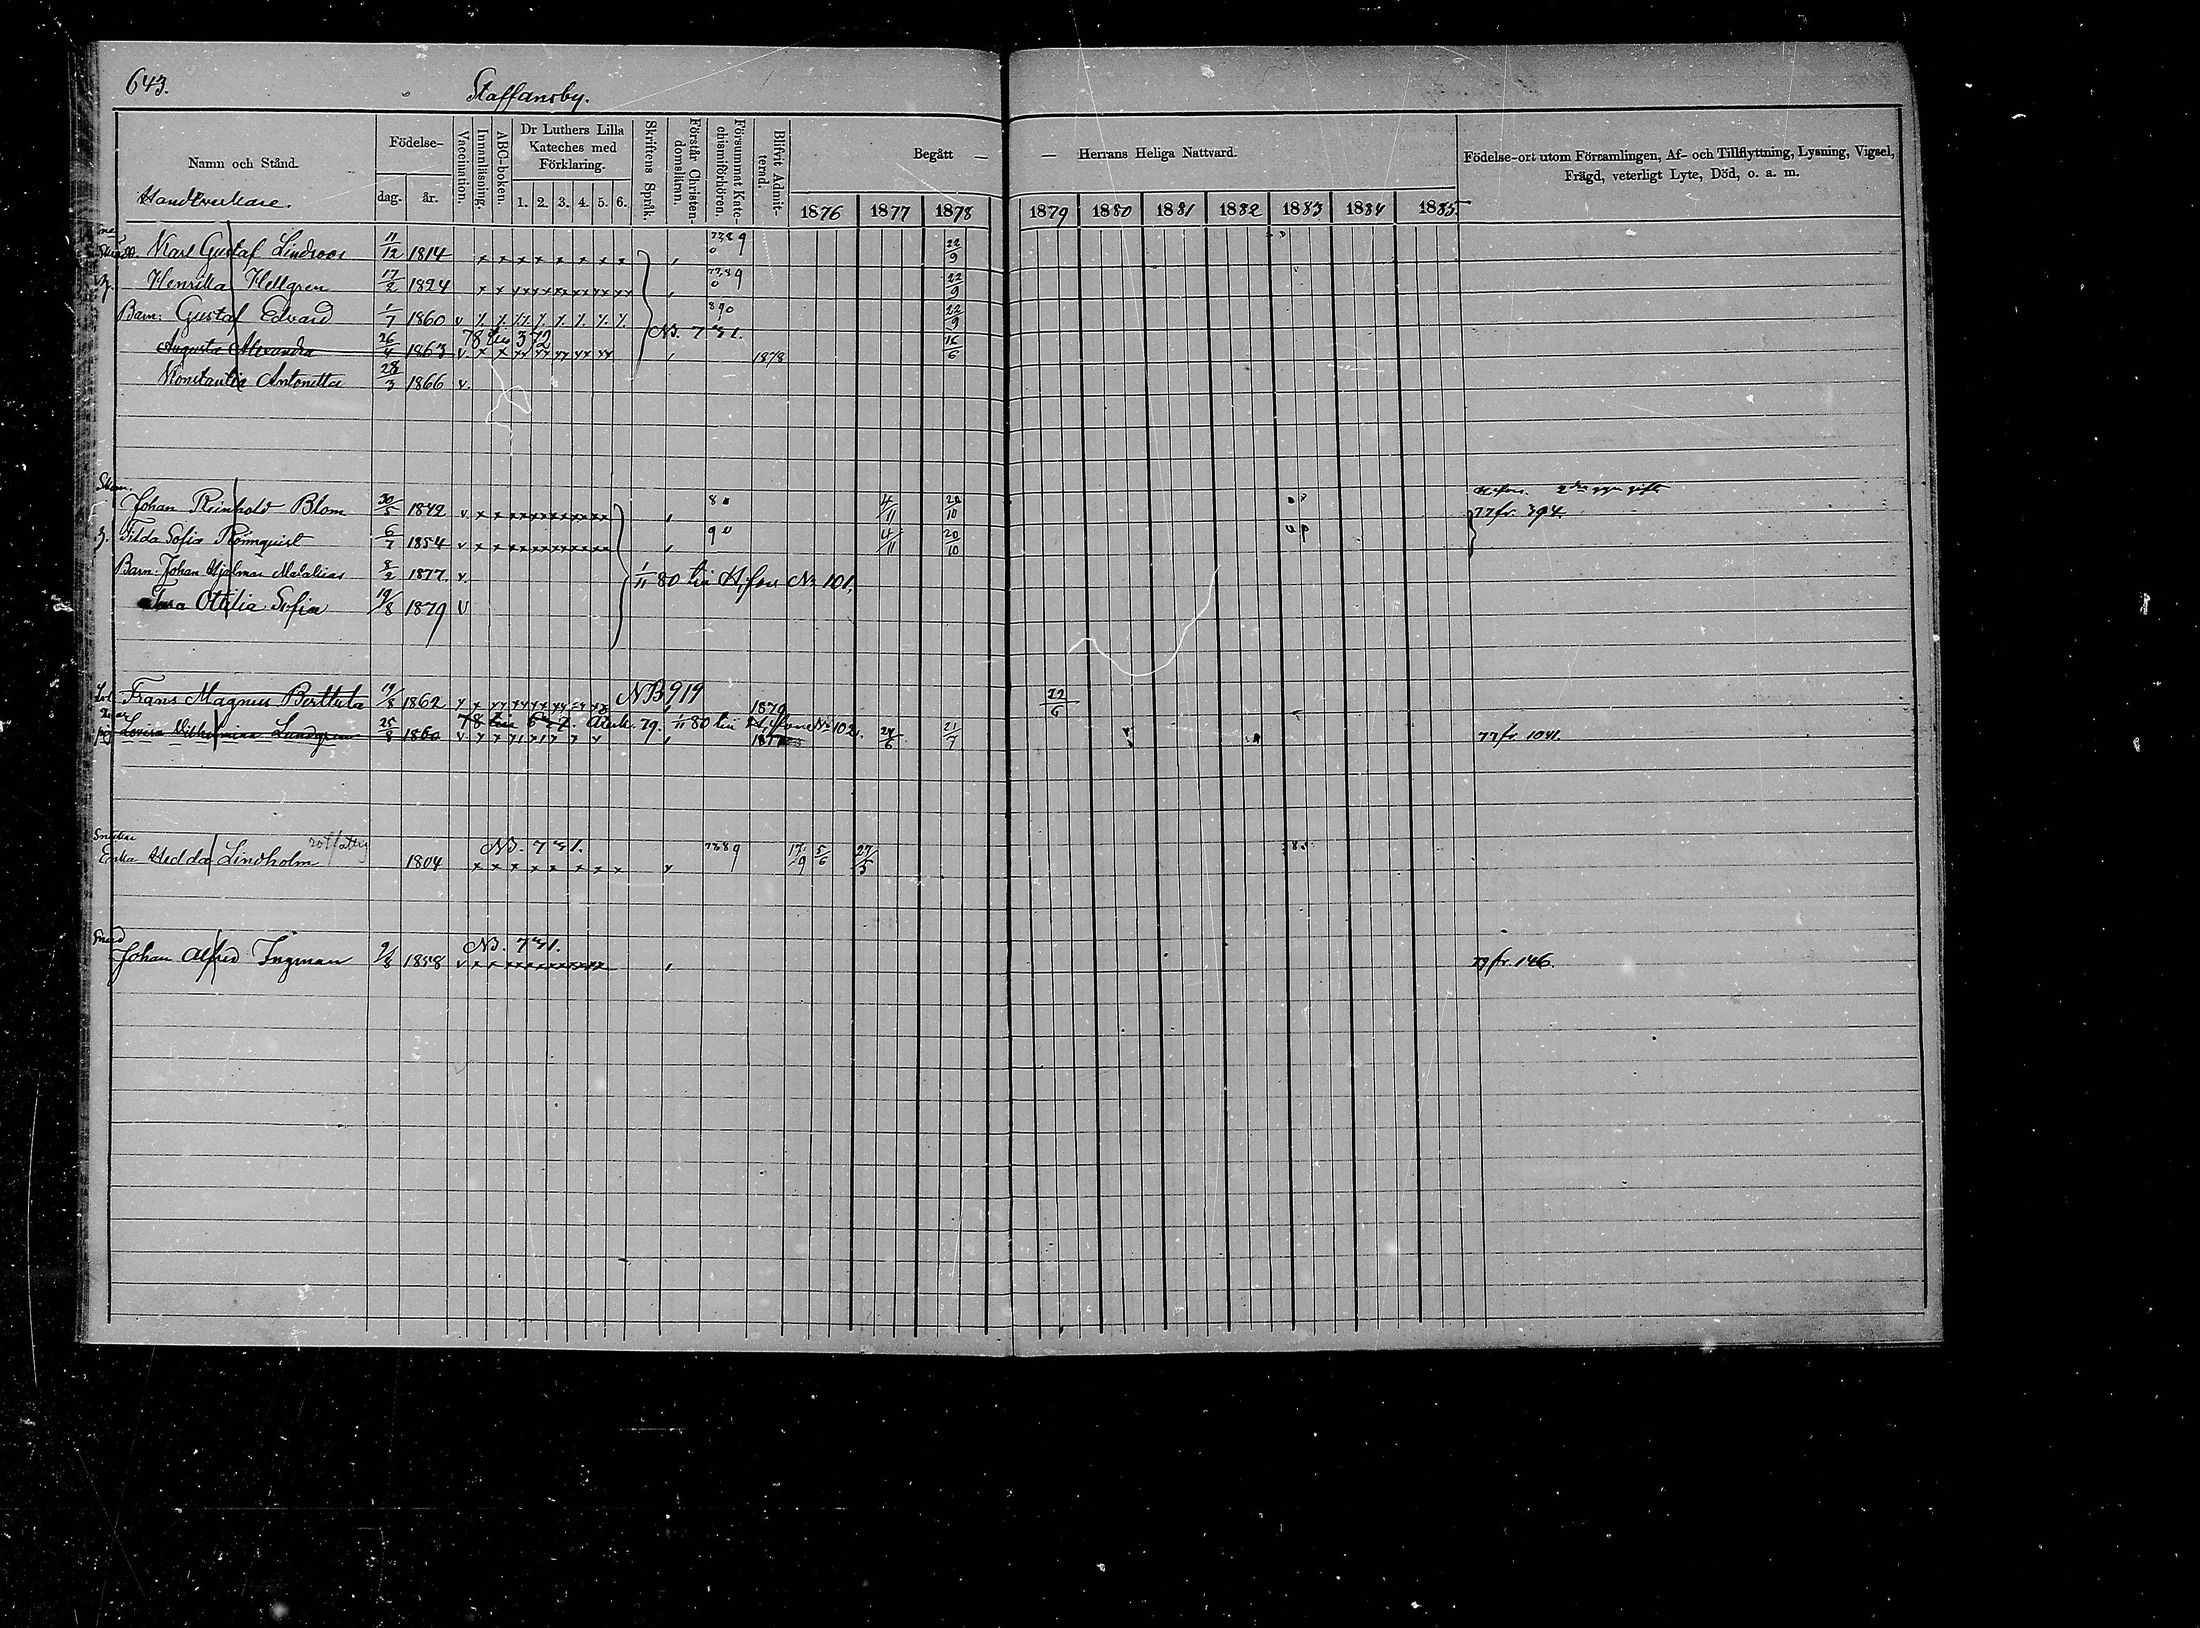 643.
Staffansby.
Namn och Stånd.
Handtverkare.
Födelse-
dag.
år.
Vaccination.
Innanläsning.
ABC-boken.
Dr Luthers Lilla
Kateches med
Förklaring.
1. 2. 3. 4. 5. 6.
Skriftens Språk.
Förstår Christen-
domsläran.
Försummat Kate-
chismiförhören.
Blifvit Admit-
terad.
Begått — — Herrans Heliga Nattvard.
1876 1877 1878 1879 1880 1881 1882 1883 1884 1885.
Födelse-ort utom Församlingen, Af- och Tillflyttning, Lysning, Vigsel,
Frägd, veterligt Lyte, Död, o. a. m.
Karl Gustaf Lindroos 11/12 1814 22/9
h. Henrika Hellgren 17/2 1824 22/9
Barn: Gustaf Edvard 1/7 1860 v 890 22/9
N3. 731.
78 till 372
Augusta Alexandra 26/4 1863 v 1878 16/6
Konstantia Antonetta 28/3 1866 v.
Johan Reinhold Blom 30/5 1842 v 80 4/11 20/10 77 fr. 394.
h. Tilda Sofia Rönnquist 6/7 1854 v 90 4/11 20/10
Barn: Johan Hjalmar Malakias 8/2 1877. v. 1/11 80 till H:fors No 101.
Ottilia Sofia 19/8 1879 v
Frans Magnus Berttula 19/8 1862 NB 919 1879 22/6
78 till 79. 1/11 80 till H:fors No 102.
Lovisa Vilhelmina Lundgren 25/8 1860 v 1877 24/6 21/7 77 fr 1041.
N3. 731.
Enka Hedda Lindholm 1804 7889 17/9 5/6 27/5
Smed
N3. 731.
Johan Alfred Ingman 9/8 1858 v 79 fr. 146.